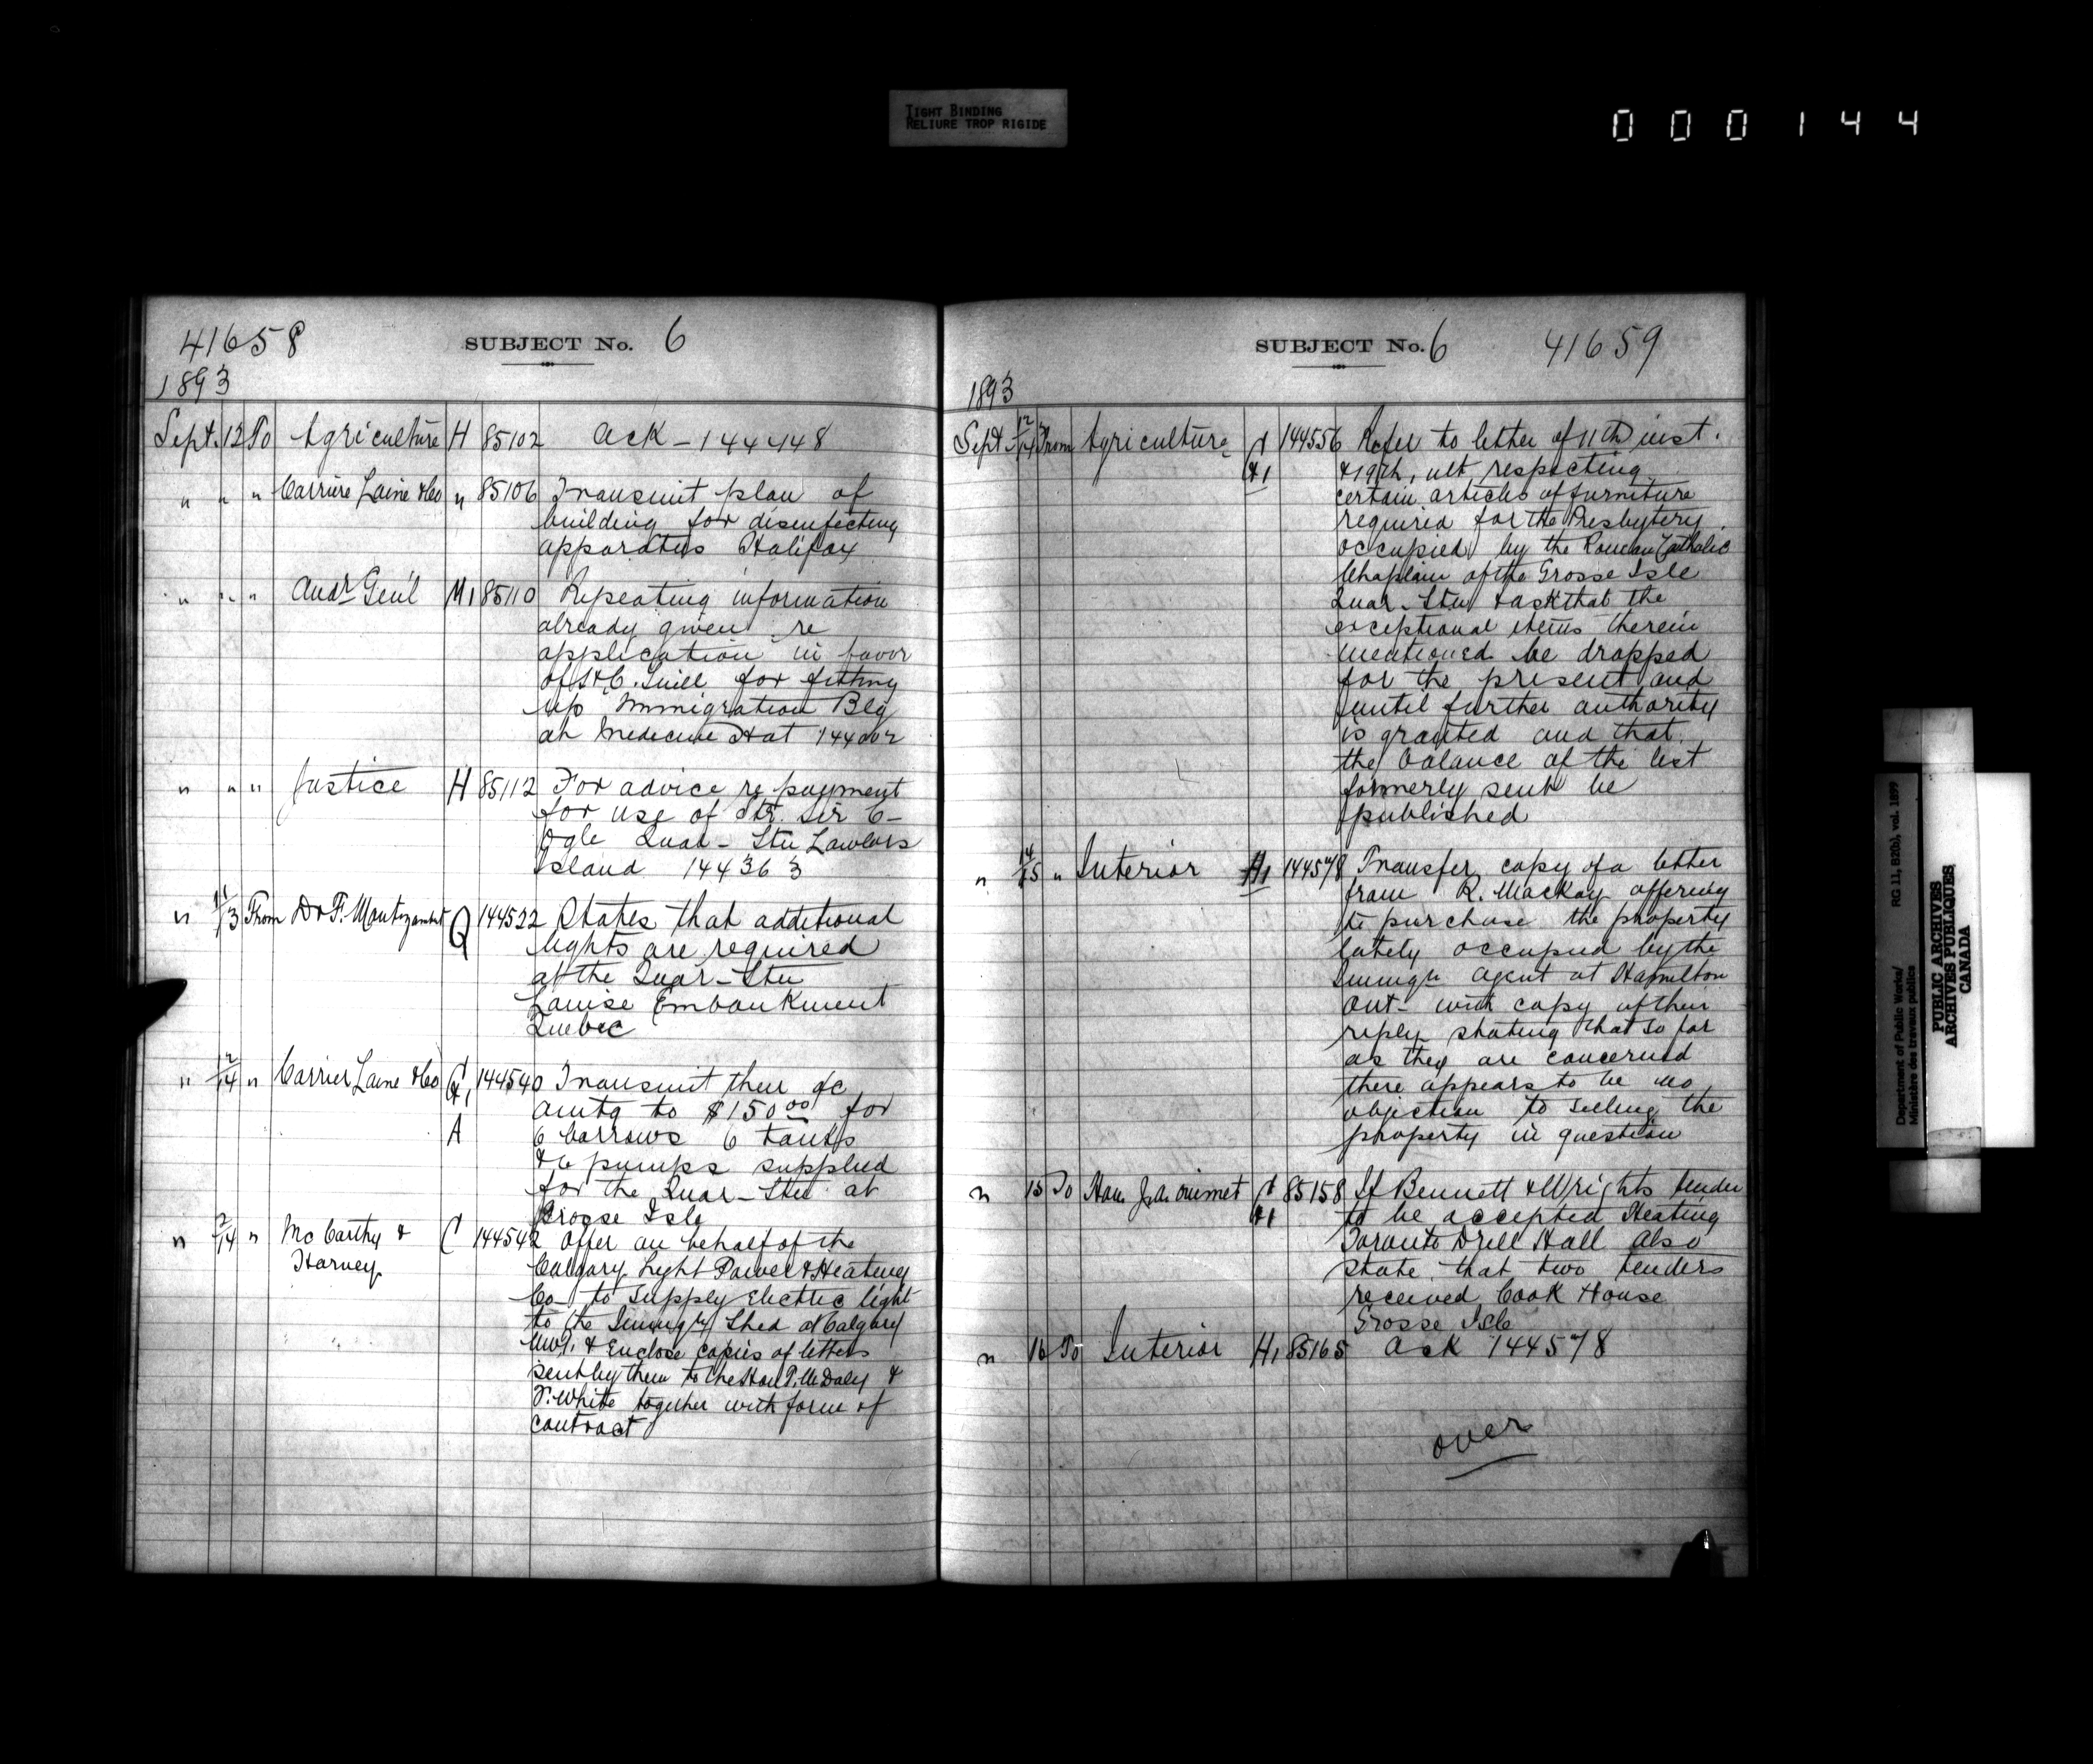 TIGHT BINDING
RELIURE TROP RIGIDE
000144
41658 SUBJECT No. 6
1893
Sept. 12 To Agriculture H 85102 Ack - 144448
" " " Carrier Laine & Co " 85106 Transmit plan of
building for disinfecting
apparatus Halifax
" " " Audr Genl M1 85110 Repeating information
already given re
application in favor
of for fitting
up Immigration Blg
at Medecine Hat
" " " Justice H 85112 For advice re payment
for use of Str. Sir C-
Ogle Quar- Stn Lawlors
Island 144363
" 11/13 From Dr F. Montizambert Q 144522 States that additional
lights are required
at the Quar-Stn
Louise Embankment
Quebec
" 12/14 " Carrier Laine & Co 144540 Transmit their a/c
A
amtg to $150.00 for
6 barrows 6 tanks
& 6 pumps supplied
for the Quar-Stn at
Grosse Isle
" 12/14 " McCarthy & C 144542 Offer on behalf of the
Harvey
Calgary Light Power & Heating
Co- to supply Electric light
to the Immign Shed at Calgary
NWT. & Enclose copies of letters
sent by them to the Hon T. M Daly &
White together with form of
contract
SUBJECT No. 6 41659
1893
Sept 12/14 From Agriculture 144556 Refer to letter of 11th inst.
& 19th, ult, respecting
certain articles of furniture
required for the Presbytery
occupied by the Roman Catholic
Chaplain of the Grosse Isle
Quar. Stn & ask that the
exceptional items therein
mentioned be dropped
for the present and
until further authority
is granted and that
the balance of the list
formerly sent be
published
" 14/15 " Interior H1 144578 Transfer copy of a letter
from R. Mackay offering
to purchase the property
lately occupied by the
Immign agent at Hamilton
Ont- with copy of their
reply stating that so far
as they are concerned
there appears to be no
objection to selling the
property in question
" 15 To Hon J.A. Ouimet 85158 If Bennett & Wrights tender
to be accepted Heating
Toronto Drill Hall also
state that two tenders
received Cook House
Grosse Isle
" 16 To Interior H1 85165 Ack 144578
over
Department of Public Works/ RG 11, B2(b), vol. 1899
Ministère des travaux publics
PUBLIC ARCHIVES
ARCHIVES PUBLIQUES
CANADA